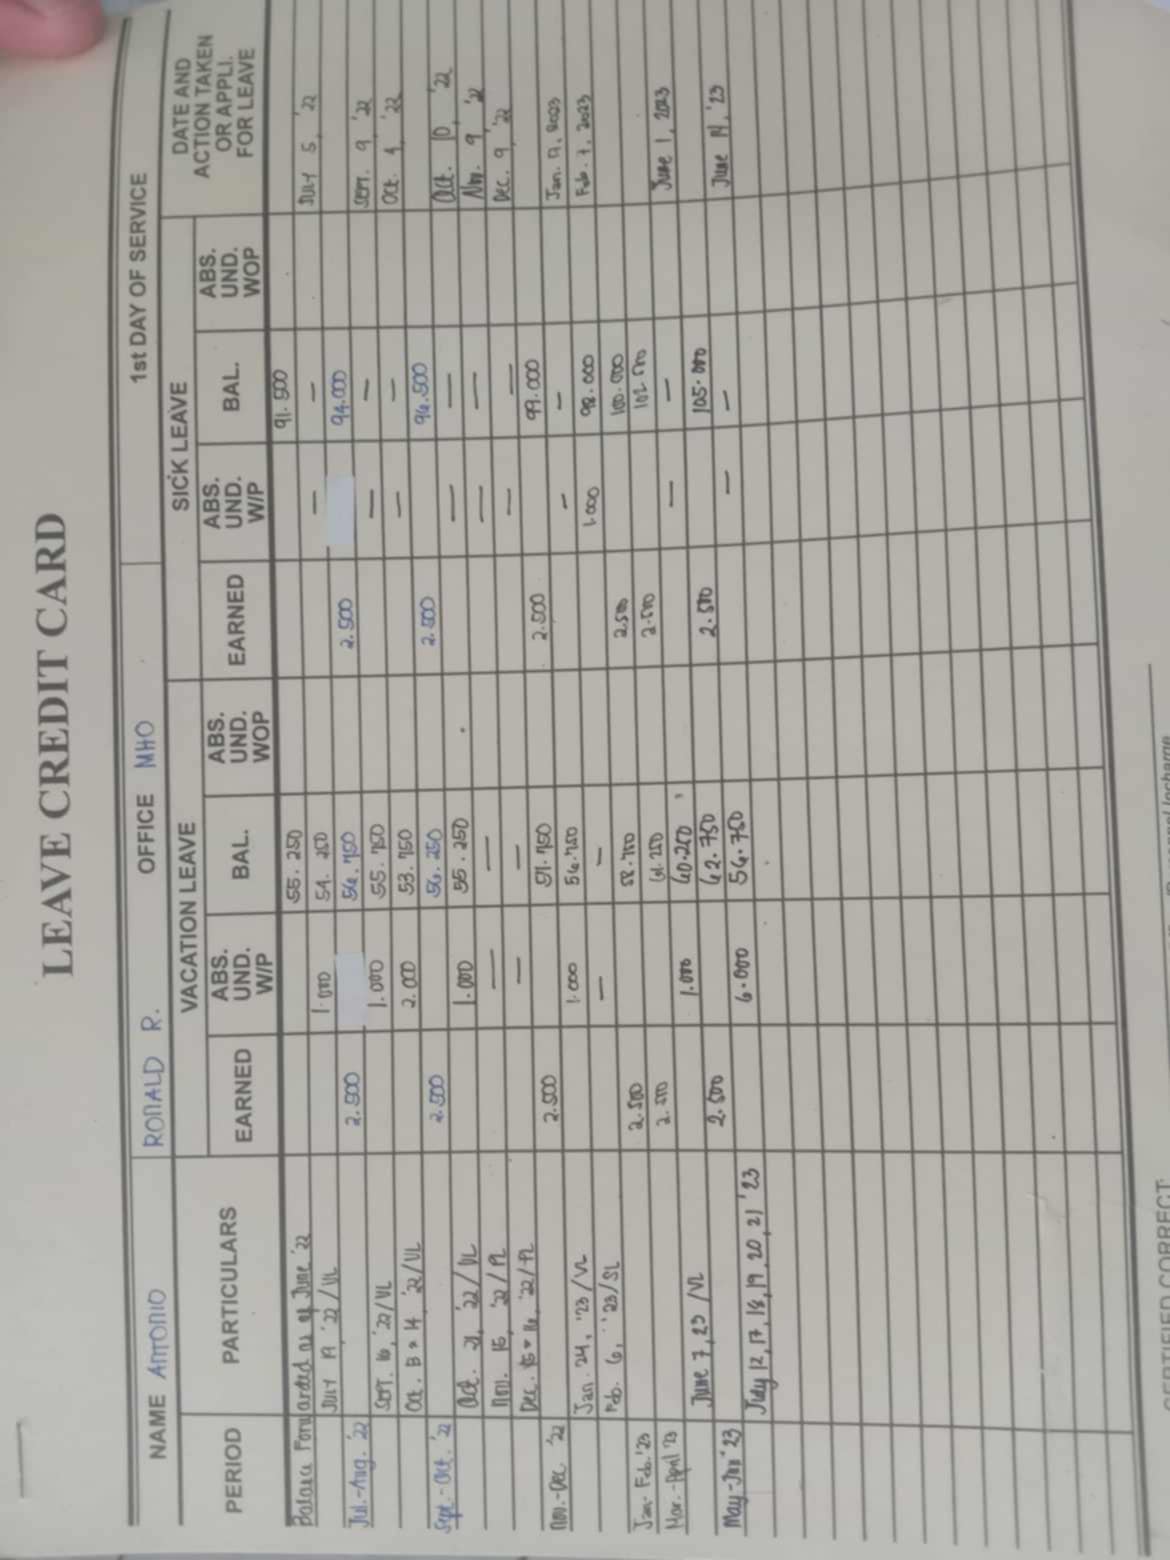 LEAVE CREDIT CARD
NAME ANTONIO RONALD R. OFFICE MHO 1st DAY OF SERVICE
PERIOD PARTICULARS VACATION LEAVE SICK LEAVE DATE AND ACTION TAKEN OR APPLI. FOR LEAVE
EARNED ABS. UND. W/P BAL. ABS. UND. WOP EARNED ABS. UND. W/P BAL. ABS. UND. WOP
Forwarded as of June '22 55.250 91.500
JULY 19, '22/VL 1.000 54.250 — — JULY 5, '22
Jul.-Aug. '22 2.500 56.750 2.500 94.000
SEPT. 16, '22/VL 1.000 55.750 — — SEPT. 9, '22
Oct. 13 & 14, '22/VL 2.000 53.750 — — Oct. 4, '22
Sept.-Oct. '22 2.500 56.250 2.500 96.500
Oct. 21, '22/VL 1.000 55.250 — — Oct. 10, '22
Nov. 15, '22/PL — — — — Nov. 9 '22
Dec. 15 & 16, '22/PL — — — — Dec. 9, '22
Nov.-Dec. '22 2.500 57.750 2.500 99.000
Jan. 24, '23/VL 1.000 56.750 — — Jan. 9, 2023
Feb. 6, '23/SL — — 1.000 98.000 Feb. 7, 2023
Jan-Feb.'23 2.500 58.750 2.500 100.000
Mar.-April '23 2.500 61.250 2.500 102.500
June 7, 23 /VL 1.000 60.250 — — June 1, 2023
May-Jun '23 2.500 62.750 2.500 105.000
July 12, 17, 18, 19, 20, 21 '23 6.000 56.750 — — June 14, '23
CERTIFIED CORRECT: